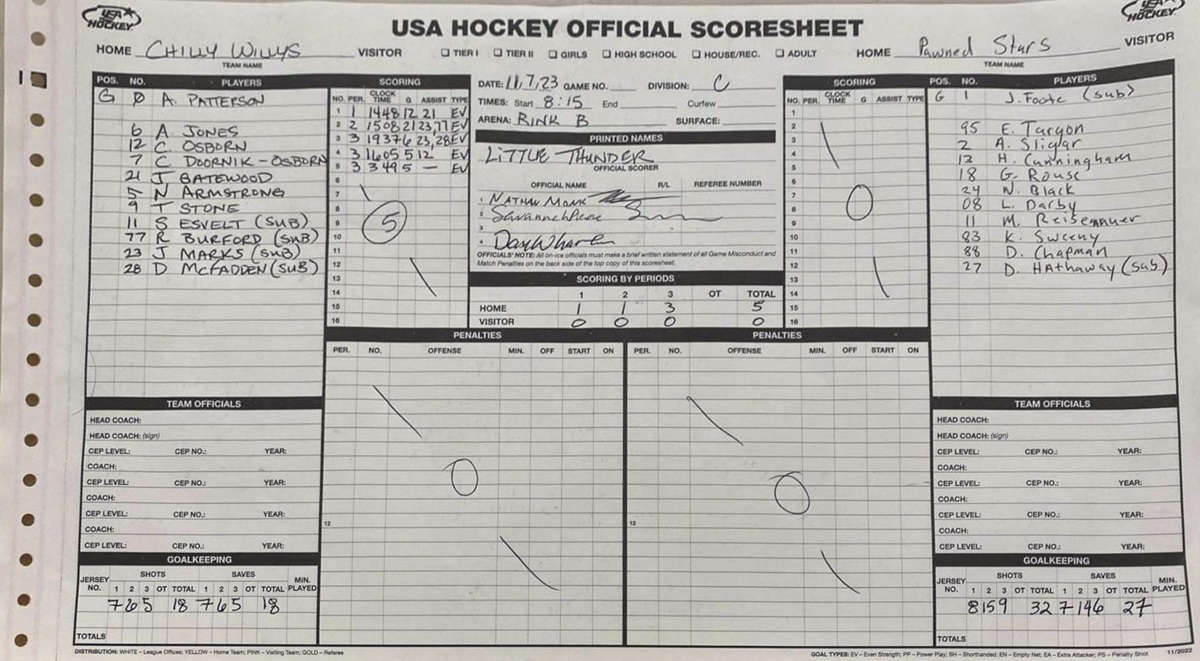 USA HOCKEY
USA HOCKEY OFFICIAL SCORESHEET
HOCKEY
HOME CHILLY WILLYS VISITOR ☐ TIER I ☐ TIER II ☐ GIRLS ☐ HIGH SCHOOL ☐ HOUSE/REC. ☐ ADULT HOME Pawned Stars VISITOR
TEAM NAME TEAM NAME
POS. NO. PLAYERS
G Ø A. PATTERSON
6 A JONES
12 C OSBORN
7 C DOORNIK-OSBORN
21 J BATEWOOD
5 N ARMSTRONG
9 T STONE
11 S ESVELT (SUB)
77 R BURFORD (SUB)
23 J MARKS (SUB)
28 D McFADDEN (SUB)
SCORING
NO. PER. CLOCK TIME G ASSIST TYPE
1 1 1448 12 21 EV
2 2 1508 21 23,77 EV
3 3 1937 6 23,28 EV
4 3 1605 5 12 EV
5 3 349 5 — EV
6
7
8
9 5
10
11
12
13
14
15
16
DATE: 11.7.23 GAME NO. DIVISION: C
TIMES: Start 8:15 End Curfew
ARENA: RINK B SURFACE:
PRINTED NAMES
LITTLE THUNDER
OFFICIAL SCORER
OFFICIAL NAME R/L REFEREE NUMBER
1 NATHAN
2 Savannah
3
4
OFFICIALS' NOTE: All on-ice officials must make a brief written statement of all Game Misconduct and
Match Penalties on the back side of the top copy of this scoresheet.
SCORING BY PERIODS
1 2 3 OT TOTAL
HOME 1 1 3 5
VISITOR 0 0 0 0
SCORING
NO. PER. CLOCK TIME G ASSIST TYPE
1
2
3
4
5
6
7
8 0
9
10
11
12
13
14
15
16
POS. NO. PLAYERS
G 1 J. Foote (sub)
95 E. Targon
2 A. Sligar
12 H. Cunningham
18 G. Rouse
24 N. Black
08 L. Darby
11 M.
83 K. Sweeny
88 D. Chapman
27 D. Hathaway (sub)
PENALTIES
PER. NO. OFFENSE MIN. OFF START ON
0
12
PENALTIES
PER. NO. OFFENSE MIN. OFF START ON
0
12
TEAM OFFICIALS
HEAD COACH:
HEAD COACH: (sign)
CEP LEVEL: CEP NO.: YEAR:
COACH:
CEP LEVEL: CEP NO.: YEAR:
COACH:
CEP LEVEL: CEP NO.: YEAR:
COACH:
CEP LEVEL: CEP NO.: YEAR:
GOALKEEPING
JERSEY NO. SHOTS SAVES MIN. PLAYED
1 2 3 OT TOTAL 1 2 3 OT TOTAL
7 6 5 18 7 6 5 18
TOTALS
TEAM OFFICIALS
HEAD COACH:
HEAD COACH: (sign)
CEP LEVEL: CEP NO.: YEAR:
COACH:
CEP LEVEL: CEP NO.: YEAR:
COACH:
CEP LEVEL: CEP NO.: YEAR:
COACH:
CEP LEVEL: CEP NO.: YEAR:
GOALKEEPING
JERSEY NO. SHOTS SAVES MIN. PLAYED
1 2 3 OT TOTAL 1 2 3 OT TOTAL
8 15 9 32 7 14 6 27
TOTALS
DISTRIBUTION: WHITE – League Offices; YELLOW – Home Team; PINK – Visiting Team; GOLD – Referee
GOAL TYPES: EV – Even Strength; PP – Power Play; SH – Shorthanded; EN – Empty Net; EA – Extra Attacker; PS – Penalty Shot 11/2022